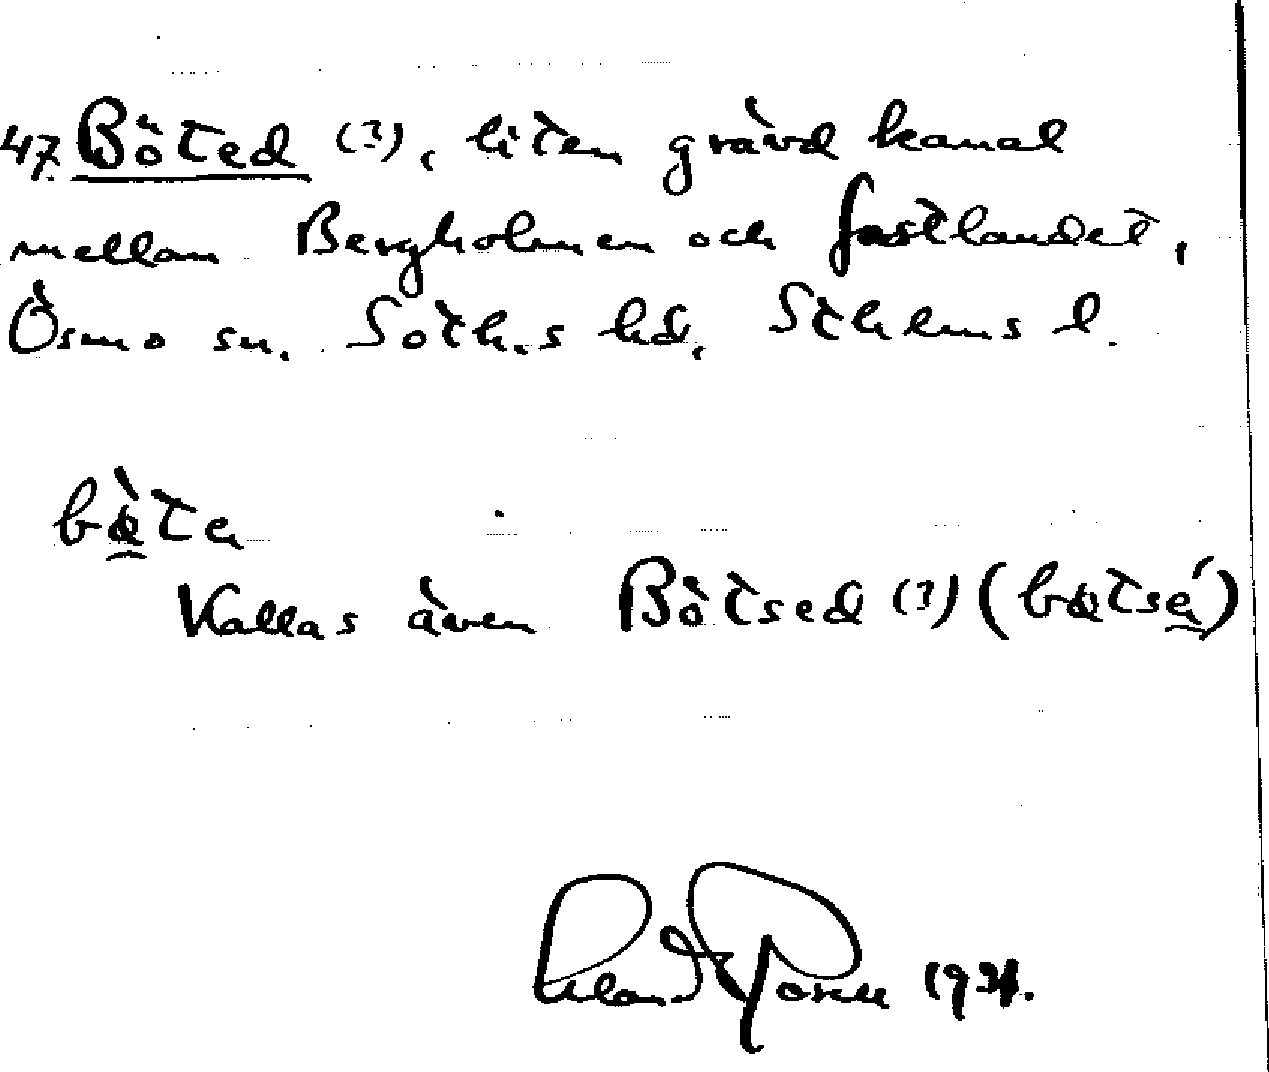 47. Böted (?), liten grävd kanal
mellan Bergholmen och fastlandet,
Ösmo sn. Soth.s hd, Sthlms l.
bøte
Kallas även Bötsed (?) (bøtsé)
1931.